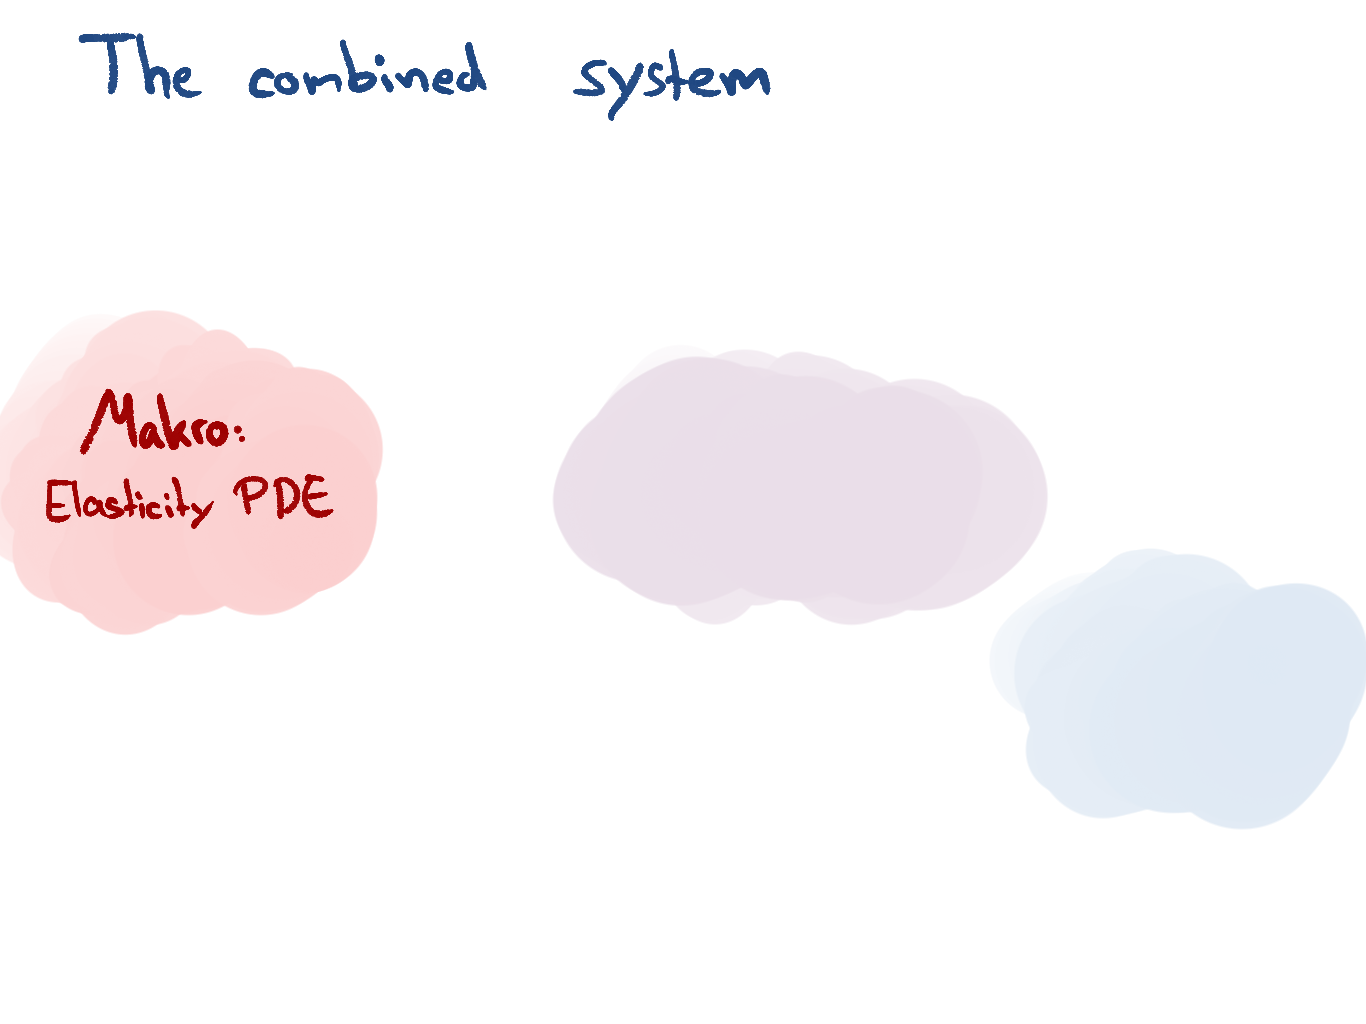 The combined system
Makro:
Elasticity PDE